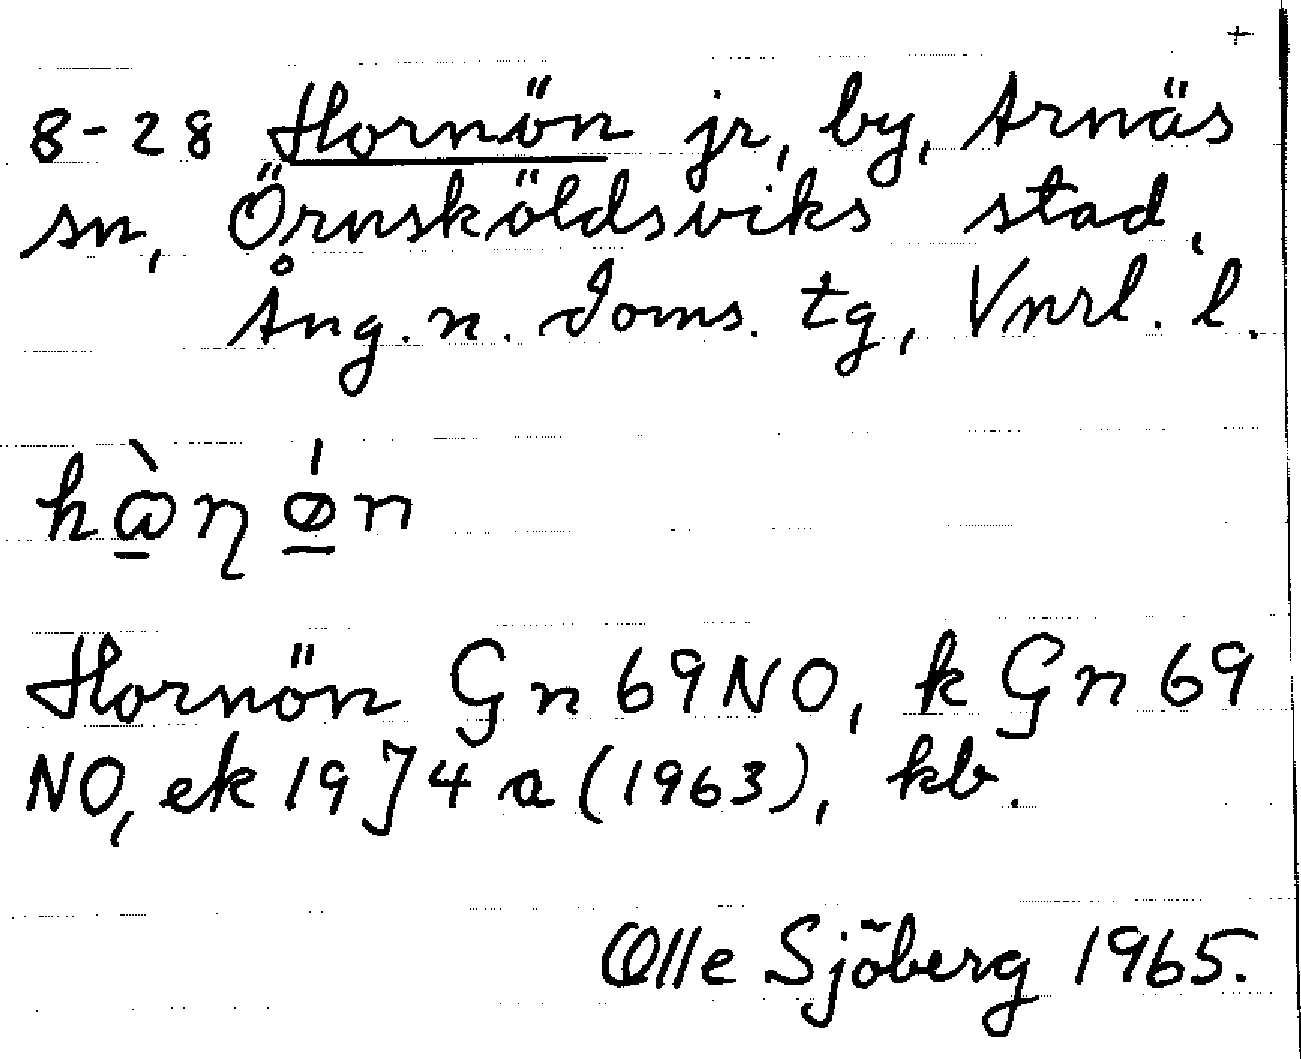 +
8-28 Hornön jr, by, Arnäs
sn, Örnsköldsviks stad,
Ång. n. doms. tg, Vnrl. l.
Hornön Gn 69NO, k Gn 69
NO, ek 19 J 4 a (1963), kb.
Olle Sjöberg 1965.